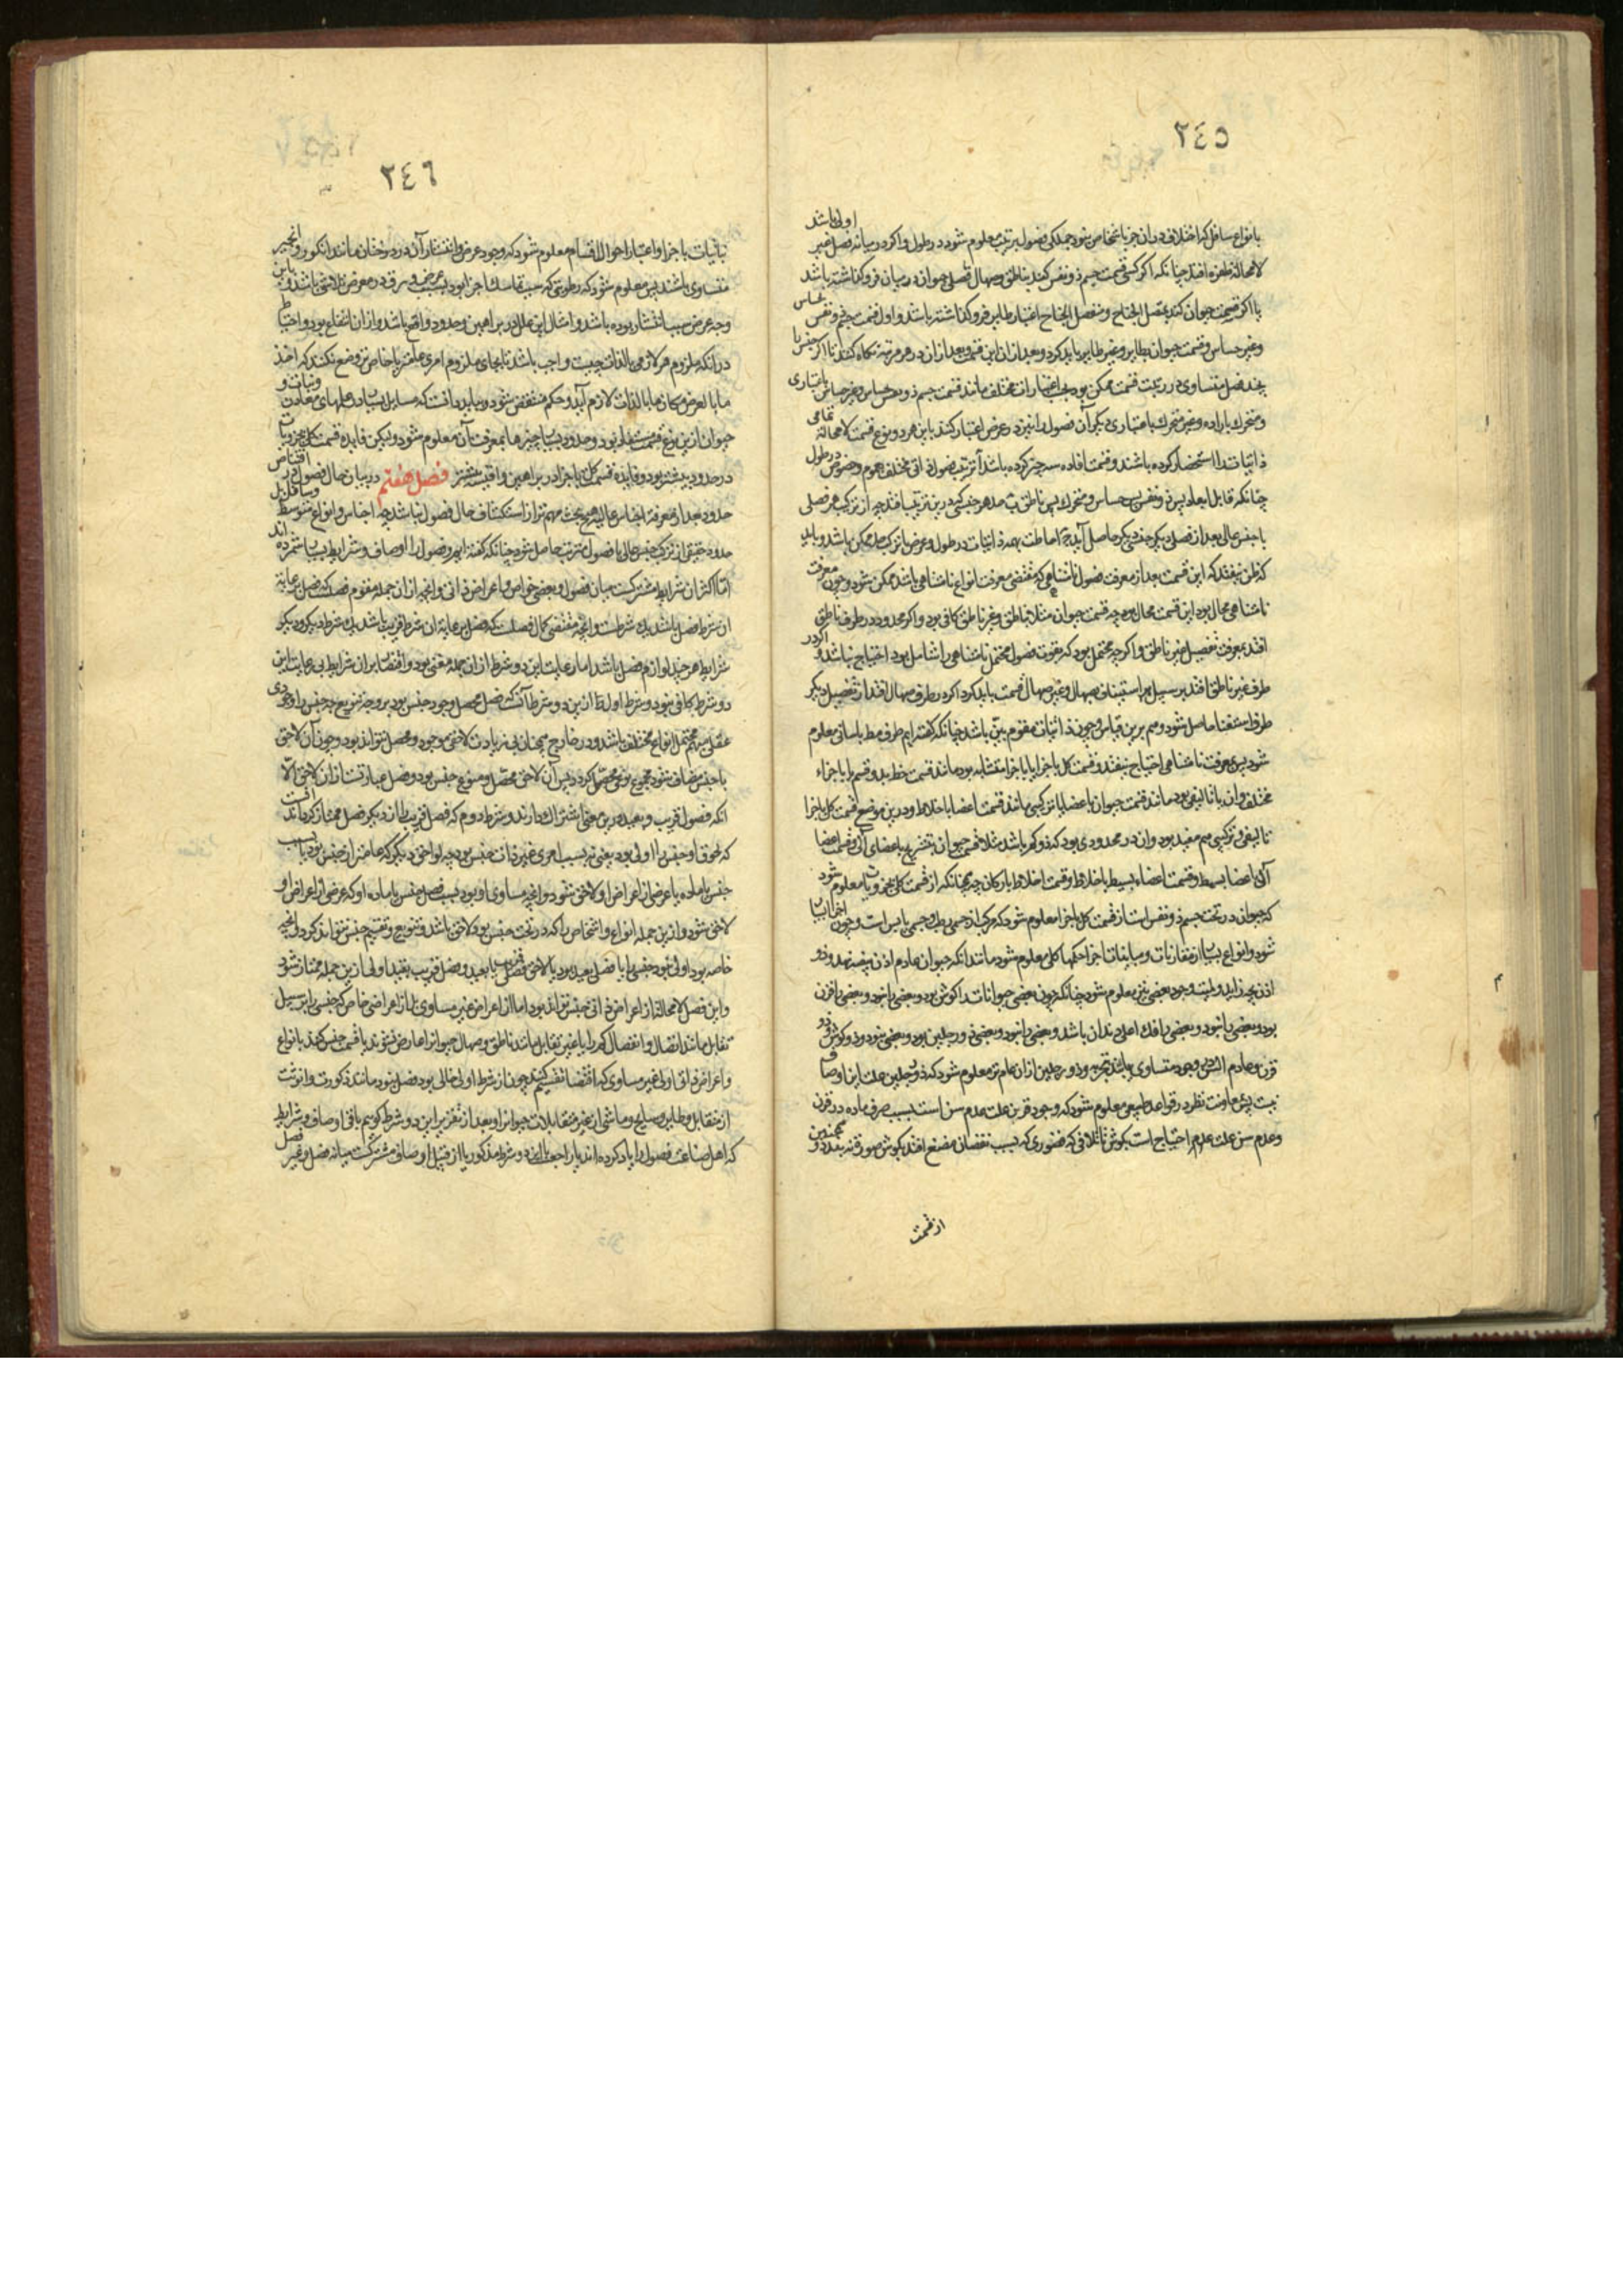 ٢٤٥
اولی باشد
بانواع سافل که اختلاف دران جز باشخاص نبود جملگی فصول بترتیب معلوم شود در طول و اگر در میانه فصل غیر
لامحاله طفره افتد چنانکه اگر کسی قسمت جسم ذو نفس کند بناطق و صهال فصل حیوان در میان فرو گذاشته باشد
یا اگر قسمت حیوان کند بمتصل الجناح و منفصل الجناح اعتبار طایر فرو گذاشته باشد و اول قسمت جسم ذو نفس بحساس
و غیر حساس و قسمت حیوان بطایر و غیر طایر باید کرد و بعد از ان این قسمت و بعد از ان در هر مرتبه نگاه کنند تا اگر جنس را
چند فصل متساوی در رتبت قسمت ممکن بود بحسب اعتبارات مختلف مانند قسمت جسم ذو نفس بحساس و غیر حساس باعتباری
و متحرک باراده و غیر متحرک باعتباری دیگر آن فصول را نیز در عرض اعتبار کنند باین هر دو نوع قسمت لامحاله تمامی
ذاتیات را استحضار کرده باشند و قسمت افاده سه چیز کرده باشد آ ترتیب فصول ذاتی مختلف بعموم و خصوص در طول
چنانکه قابل ابعاد پس ذو نفس پس حساس و متحرک پس ناطق ب
یا جنس عالی بعد از فصلی دیگر جنسی دیگر حاصل آید ج احاطت بهمه ذاتیات در طول و عرض تا ترکیب حد ممکن باشد و باید
که ظن نیفتد که این قسمت بعد از معرفت فصول نامتناهی که مقتضی معرفت انواع نامتناهی باشد ممکن شود و چون معرفت
نامتناهی محال بود این قسمت محال بود چه قسمت حیوان مثلا بناطق و غیر ناطق کافی بود و اگر محدود در طرف ناطق
افتد بمعرفت تفصیل غیر ناطق و اگر چه محتمل بود که بقوت فصول محتمل نامتناهی را شامل بود احتیاج نباشد و اگر در
طرف غیر ناطق افتد بر سبیل استیناف بصهال و غیر صهال قسمت باید کرد اگر در طرف صهال افتد از تفصیل دیگر
طرف استغنا حاصل شود و هم برین قیاس و چون ذاتیات مقوم بین باشد چنانکه گفته‌ایم طرف مطلوب باسانی معلوم
شود پس بمعرفت نامتناهی احتیاج نیفتد و قسمت کل باجزا یا باجزا متشابه بود مانند قسمت خط بدو قسم یا باجزاء
مختلف و ان یا تالیفی بود مانند قسمت حیوان باعضا یا ترکیبی مانند قسمت اعضا باخلاط و درین موضع قسمت کل باجزا
تالیفی و ترکیبی هم مفید بود و ان در محدودی بود که ذو کم باشد مثلا قسمت حیوان بتشریح باعضای آلی و قسمت اعضا
آلی باعضا بسیط و قسمت اعضاء بسیط باخلاط و قسمت اخلاط بارکان چه همچنانکه از قسمت کلی بجزویات معلوم شود
که حیوان در تحت جسم ذو نفس است از قسمت کل باجزا معلوم شود که مرکب از جسمی رطب و جسمی یابس است و چون اجزا اسباب
شود و انواع بسیار از مقارنات و مباینات اجزا حکمها کلی معلوم شود مانند انکه حیوان عادم اذن بیضه نهد و ذو
اذن بچه زاید و لمیت وجود بعضی نیز معلوم شود چنانکه چون بعضی حیوانات را گوش بود و بعضی را نبود و بعضی را قرن
بود و بعضی را نبود و بعضی را فک اعلی دندان باشد و بعضی را نبود و بعضی ذو رجلین بود و بعضی نبود و ذو گوش و ذو
قرن و عادم السن وجود متساوی باشند
نیست پس بمعاونت نظر در قواعد طبیعی معلوم شود که وجود قرن علت عدم سن است بسبب صرف ماده در قرن
و عدم سن علت عدم احتیاج است بگوش تا تلافی که قصوری که بسبب نقصان مضغ افتد بگوش همچنین
از قسمت
٢٤٦
نباتات باجزا و اعتبار احوال اقسام معلوم شود که وجود عرض و انتشار آن در درختان مانند انگور و انجیر
متساوی باشند پس معلوم شود که رطوبتی که سبب تماسک اجزا بود بسبب عرض ورق در معرض تلاشی باشد و باین
وجه عرض سبب انتشار بوده باشد و امثال این علل در براهین و حدود واقع باشد و از ان انتفاع بود و احتیاط
در انکه ملزوم هر لازمی بالذات چیست واجب باشد تا بجای ملزوم امری عامتر یا خاصتر وضع نکنند که اخذ
ما بالعرض مکان ما بالذات لازم آید و حکم منتقض شود و بباید دانست که مسایل بسیار در علمهای معادن و نبات و
حیوان ازین نوع قسمت مستفاد بود و حدود بسیار چیزها بمعرفت آن معلوم شود و لیکن فایده قسمت کلی بجزویات
در حدود بیشتر بود و فایده قسمت کل باجزا در براهین واقعیت بیشتر فصل هفتم در بیان حال فصول در اقتناص
حدود بعد از معرفت اجناس عالیه هیچ بحث مهم‌تر از استکشاف حال فصول نباشد چه اجناس و انواع متوسط و سافل بل
حدود حقیقی از ترکیب جنس عالی با فصول مترتب حاصل شود چنانکه گفته‌ایم و فصول را اوصاف و شرایط بسیار شمرده‌اند
اما اکثر ان شرایط مشترکست میان فصول و بعضی خواص و اعراض ذاتی و انچه از ان جمله مقوم فصلست
از شرط فصل باشد یک شرطست و انچه مقتضی کمال فصلست
شرایط هر چند لوازم فصل باشد اما رعایت این دو شرط از ان جمله مغنی بود و اقتصار بر ان شرایط بی رعایت این
دو شرط کافی نبود و شرط اول ازین دو شرط آنست که فصل محصل وجود جنس بود بر وجه تنویع چه جنس را وجودی
عقلی مبهم محتمل انواع مختلف باشد و در خارج همچنان بی زیادت لاحقی موجود و محصل نتواند بود و چون آن لاحق
با جنس مضاف شود مجموع نوعی محصل گردد پس آن لاحق محصل و منوع جنس بود و فصل عبارتست از ان لاحق الا
انکه فصول قریب و بعید درین معنی اشتراک دارند و شرط دوم که فصل قریب را از دیگر فصل ممتاز گرداند آنست
که لحوق او جنس را اولی بود یعنی نه بسبب امری غیر ذات جنس بود چه لواحق دیگر که عامتر از جنس بود یا بسبب
جنس یا ماده یا عرضی از اعراض او لاحق شود و انچه مساوی او بود بسبب فصل جنس یا ماده او که عرضی از اعراض او
لاحق شود و ازین جمله انواع و اشخاص را که در تحت جنس بود لاحق باشد و تنویع و تقسیم جنس نتواند کرد ولی انچه
خاصه بود اولی نبود جنس را یا فصلی بعید بود یا لاحق فصلی قریب یا بعید و فصل قریب بقید اولی ازین جمله ممتاز شود
و این فصل لامحاله از اعراض ذاتی جنس تواند بود اما از اعراض غیر مساوی بل از اعراضی خاص که جنس را بر سبیل
تقابل مانند اتصال و انفصال کم را یا غیر تقابل مانند ناطق و صهال حیوان را عارض شوند یا قسمت جنس کنند بانواع
و اعراض ذاتی اولی غیر مساوی که اقتضا تقسیم کنند چون از شرط اولی خالی بود فصل نبود مانند ذکورت و انوثت
از متقابل و طایر و سابح و ماشی از غیر متقابلات حیوان را و بعد از تقریر این دو شرط گوییم باقی اوصاف و شرایط
که اهل صناعت فصول را یاد کرده‌اند یا راجع با این دو شرط مذکور یا از قبیل اوصافی مشترکست میانه فصل و غیر فصل